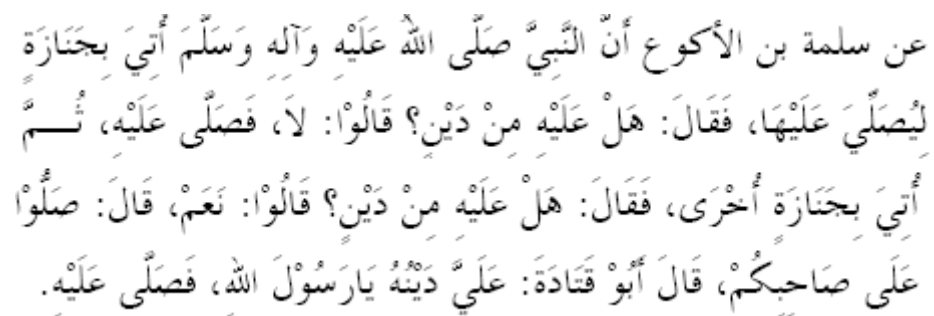 عن سلمة بن الأكوع أَنَّ النَّبِيَّ صَلَّى اللهُ عَلَيْهِ وَآلِهِ وَسَلَّمَ أُتِيَ بِجَنَازَةٍ
لِيُصَلِّيَ عَلَيْهَا، فَقَالَ: هَلْ عَلَيْهِ مِنْ دَيْنٍ؟ قَالُوْا: لاَ، فَصَلَّى عَلَيْهِ، ثُـــمَّ
أُتِيَ بِجَنَازَةٍ أُخْرَى، فَقَالَ: هَلْ عَلَيْهِ مِنْ دَيْنٍ؟ قَالُوْا: نَعَمْ، قَالَ: صَلُّوْا
عَلَى صَاحِبِكُمْ، قَالَ أَبُوْ قَتَادَةَ: عَلَيَّ دَيْنُهُ يَارَسُوْلَ اللهِ، فَصَلَّى عَلَيْهِ.